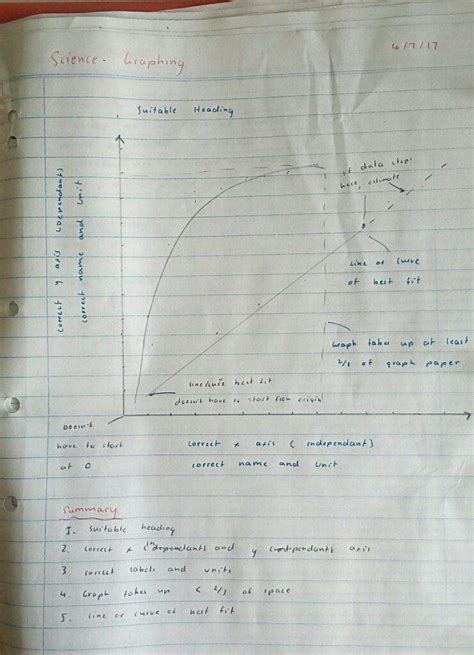 4/7/17
Science - Graphing
Suitable Heading
if data stops
here, estimate
correct y axis (dependant)
correct name and unit
Line or curve
of best fit
Graph takes up at least
2/3 of graph paper
line/curve best fit
doesn't have to start from origin
Doesn't
have to start
at 0
correct x axis (independant)
correct name and unit
Summary
1. Suitable heading
2. correct x (independant) and y (dependant) axis
3. correct labels and units
4. Graph takes up < 2/3 of space
5. Line or curve of best fit